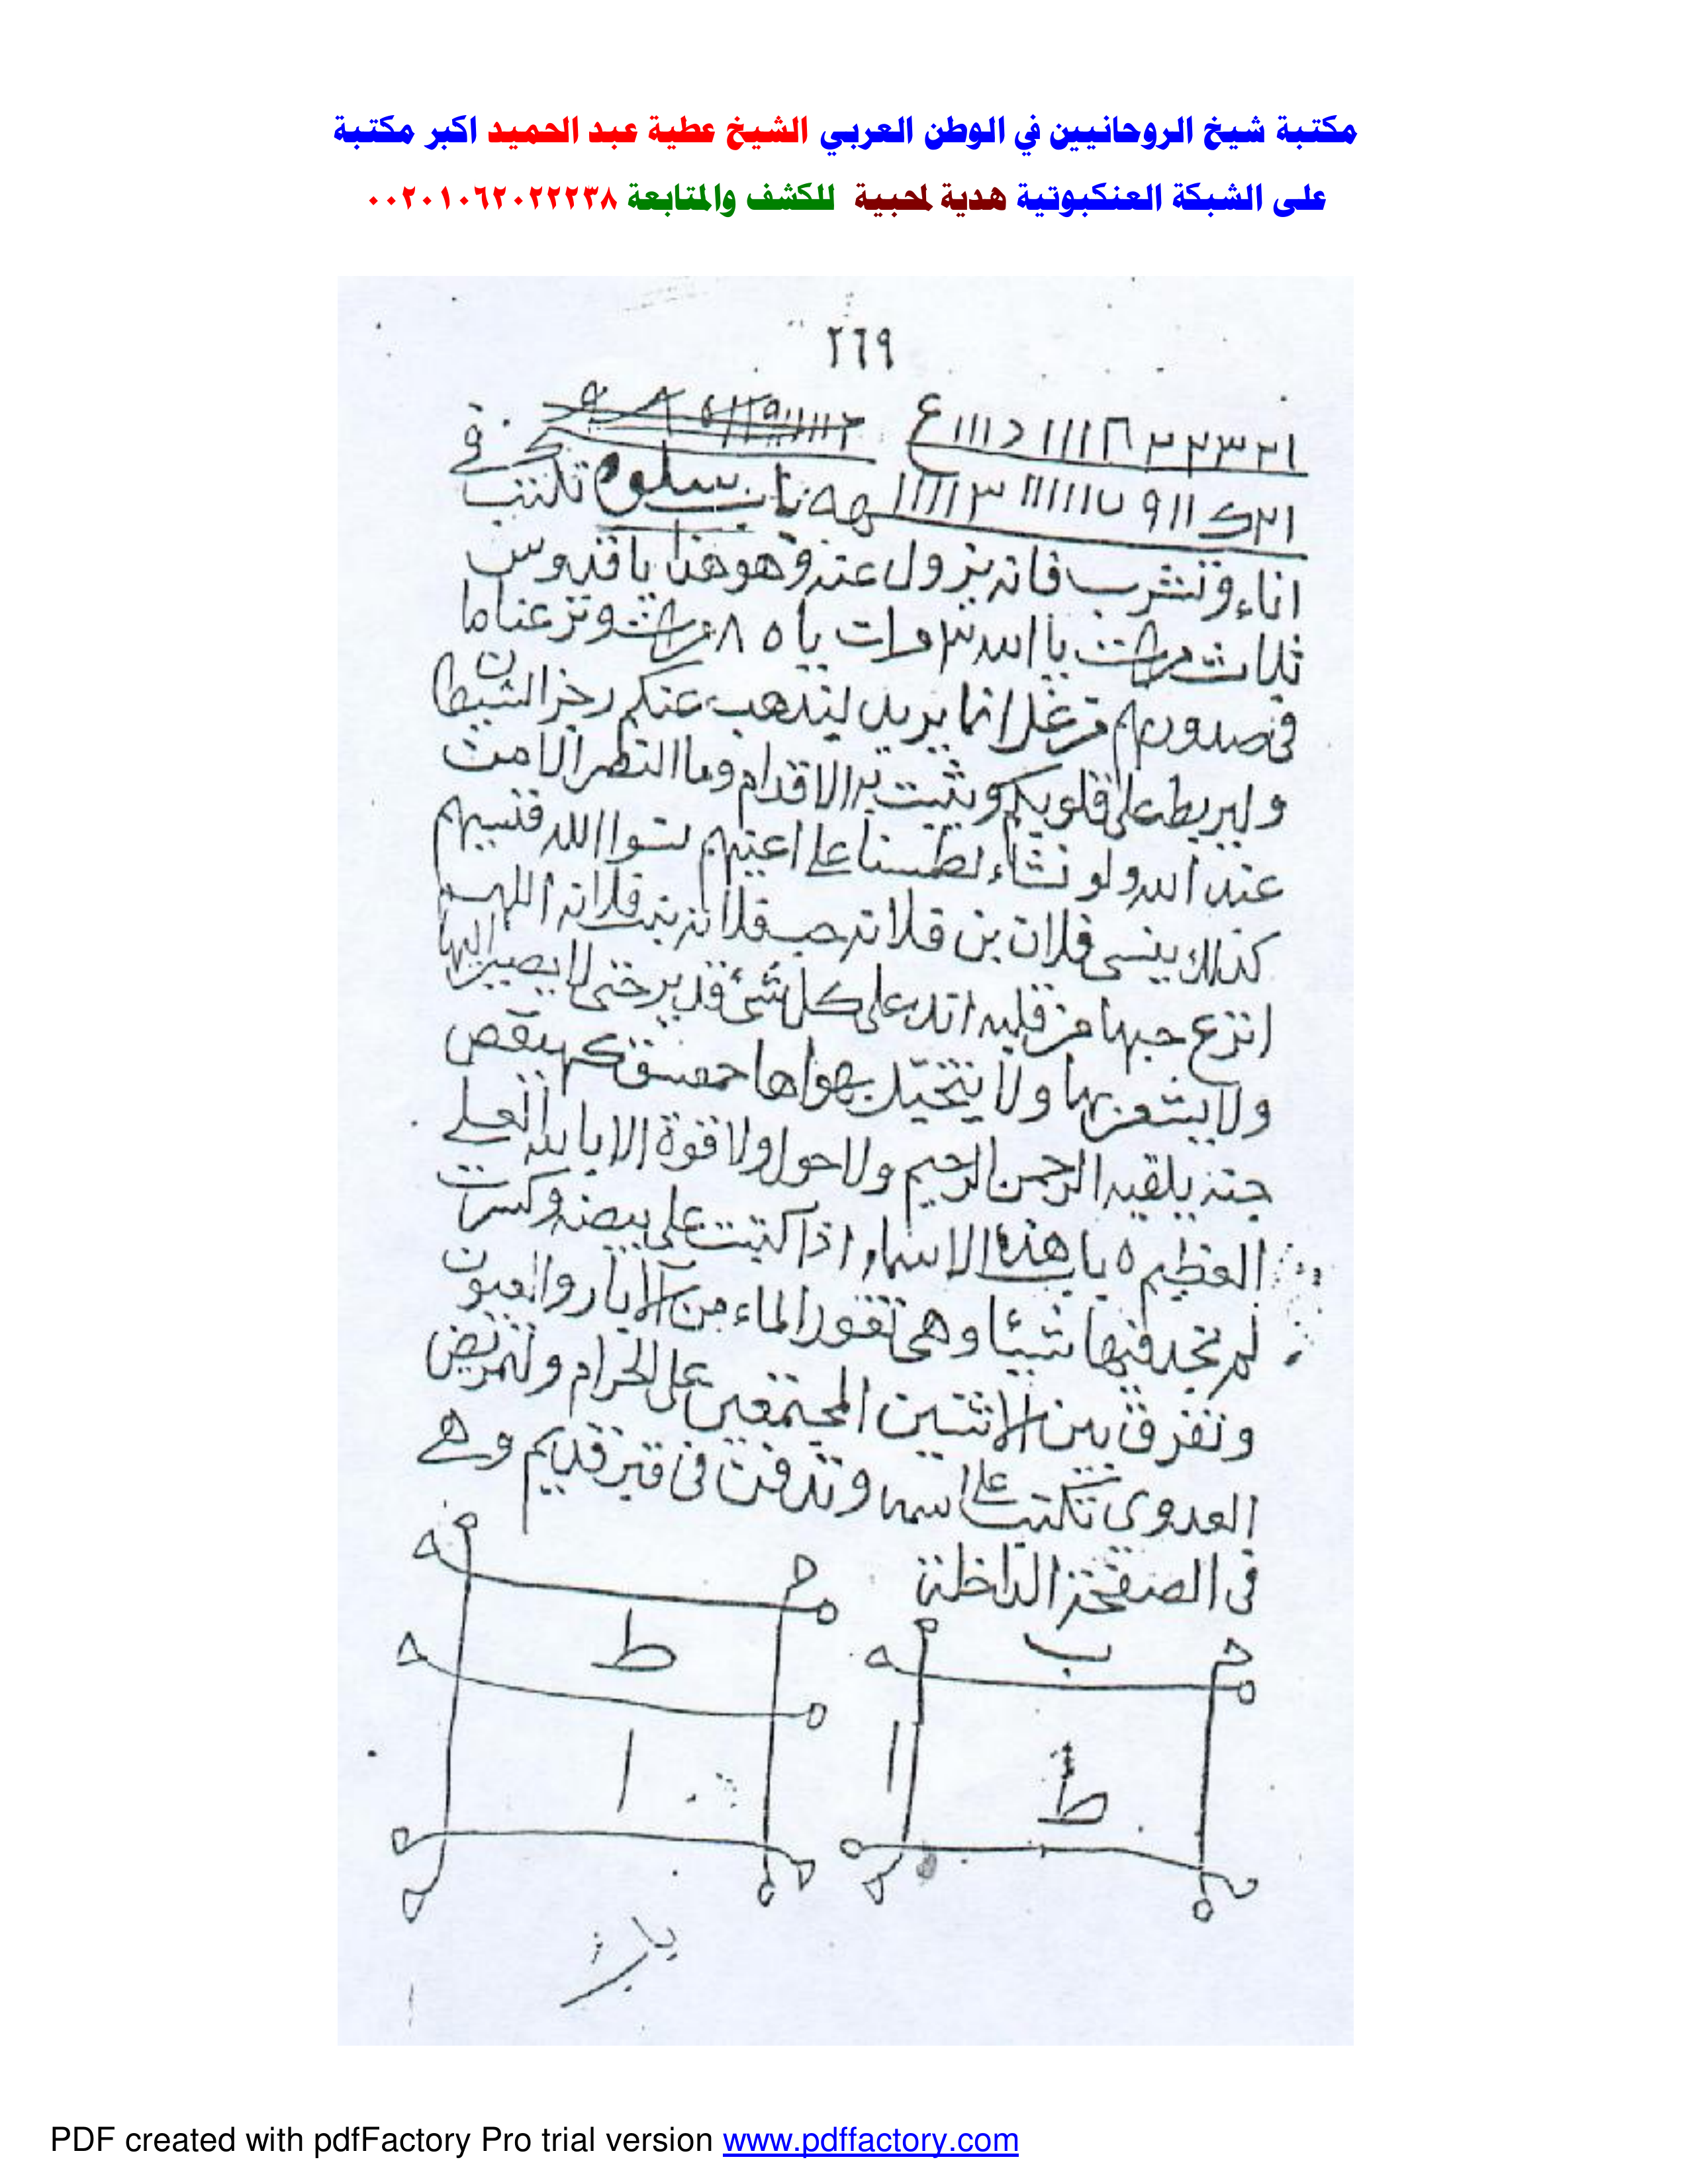 مكتبة شيخ الروحانيين في الوطن العربي الشيخ عطية عبد الحميد اكبر مكتبة
على الشبكة العنكبوتية هدية لمحبية للكشف والمتابعة ٠٠٢٠١٠٦٢٠٢٢٢٣٨
٢٦٩
باب سلوه تكتب في
اناء وتشرب فانه يزول عنه وهو هذا يا قدوس
ثلاث مرات يا الله ٣ مرات يا ٨٥ ونزعنا ما
في صدورهم من غل انما يريد ليذهب عنكم رجز الشيطان
وليربط على قلوبكم ويثبت به الاقدام وما النصر الا من
عند الله ولو نشاء لطمسنا على اعينهم نسوا الله فنسيهم
كذلك ينسى فلان بن فلانه حب فلانه بنت فلانه اللهم
انزع حبها من قلبه انك على كل شئ قدير حتى لا يصير اليها
ولا يشعر بها ولا يتخيل بهواها حمعسق كهيعص
الرحمن الرحيم ولا حول ولا قوة الا بالله العلي
العظيم ه باب هذه الاسماء اذا كتبت على بيضه وكسرت
لم تجد فيها شيئا وهى تغور الماء من الآبار والعيون
وتفرق بين الاثنين المجتمعين على الحرام ولتمريض
العدوى تكتب على اسمه وتدفن فى قبر قديم وهى
فى الصفحة الداخلة
ط
ب
ا
ط
PDF created with pdfFactory Pro trial version www.pdffactory.com